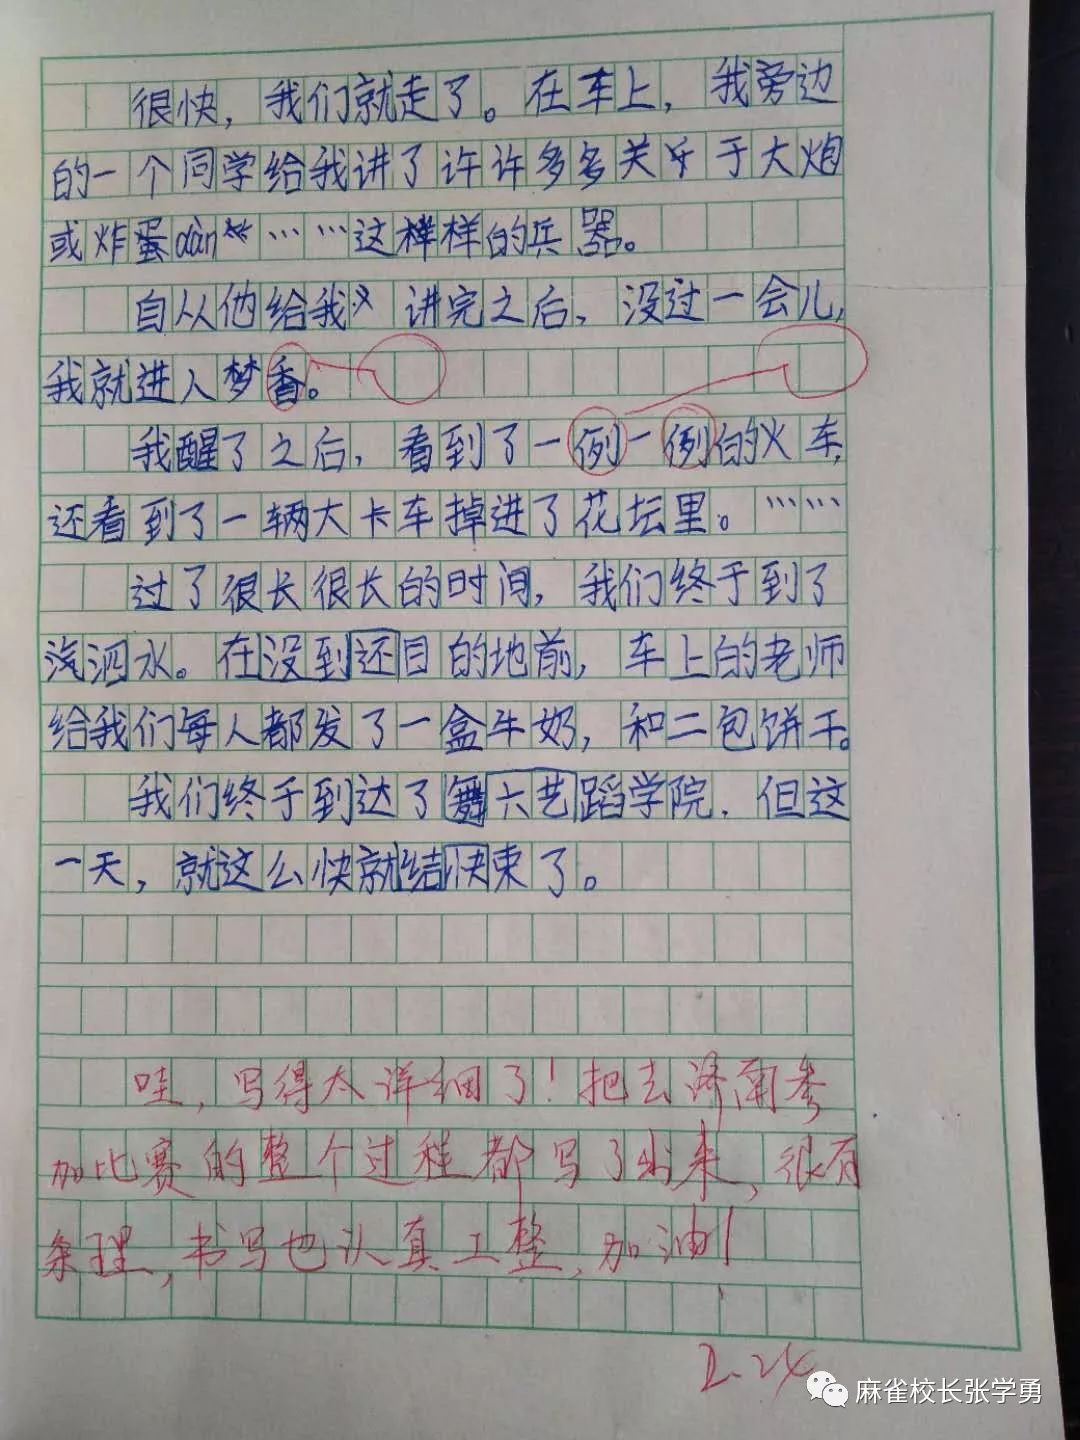 很快，我们就走了。在车上，我旁边
的一个同学给我讲了许许多多关于于大炮
或炸蛋dàn……这样样的兵器。
自从他给我讲完之后，没过一会儿，
我就进入梦香。
我醒了之后，看到了一例一例的火车，
还看到了一辆大卡车掉进了花坛里。……
过了很长很长的时间，我们终于到了
汽泗水。在没到还目的地前，车上的老师
给我们每人都发了一盒牛奶，和二包饼干。
我们终于到达了舞六艺蹈学院．但这
一天，就这么快就结快束了。
哇，写得太详细了！把去济南参
加比赛的整个过程都写了出来，很有
条理，书写也认真工整，加油！
2.24
麻雀校长张学勇